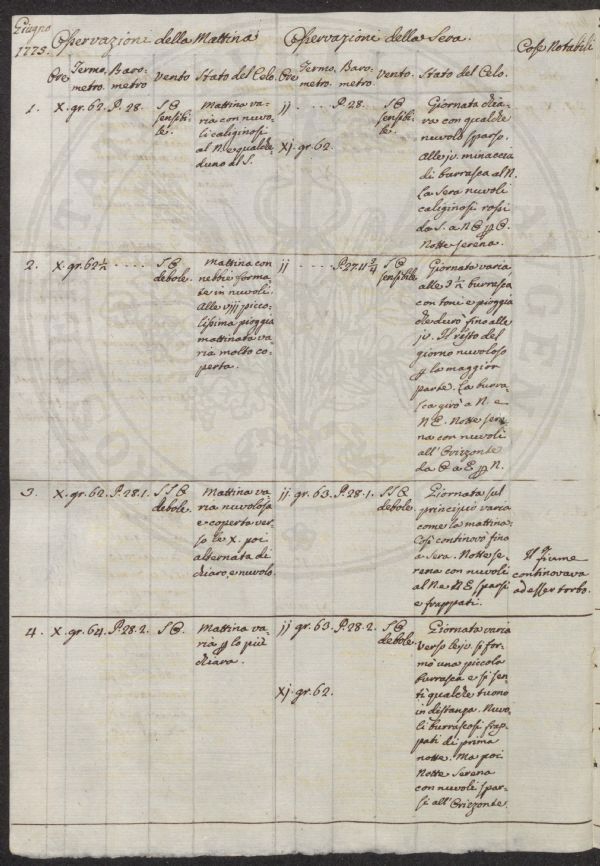 Giugno
1775. Osservazioni della Mattina Osservazioni della Sera. Cose Notabili
Ore Termo. metro. Baro. metro vento Stato del Celo. Ore Termo. metro. Baro. metro vento. Stato del Celo.
1. X. gr. 62. P. 28. S E sensibi- le. Mattina va-
ria con nuvo-
li caliginosi
al N. e qualche-
duno al S.
ij . . . . P. 28. S E sensibi- le.
Xj. gr. 62.
Giornata chia-
ra con qualche
nuvolo sparso.
Alle iv. minaccia
di burrasca al N.
La Sera nuvoli
caliginosi rossi
da S. a N E p E.
Notte serena.
2. X. gr. 62 ½ . . . . . S E debole. Mattina con
nebbie forma-
te in nuvoli.
Alle viij picco-
lissima pioggia
mattinata va-
ria molto co-
perta.
ij . . . . P. 27. 11 ¾ S E sensibile.
Giornata varia,
alle 3 ½ burrasca
con toni e pioggia
che durò fino alle
iv. Il resto del
giorno nuvoloso
p la maggior
parte. La burra-
sca girò a N. e
N E. Notte sere-
na con nuvoli
all' Orizzonte
da E a p N.
3. X. gr. 62. P. 28. 1. S S E debole. Mattina va-
ria nuvolosa
e coperta ver-
so le X. poi
alternata di
chiaro, e nuvolo.
ij. gr. 63. P. 28. 1. S S E debole.
Giornata sul
principio varia
come la mattina.
Così continovò fino
a sera. Notte se-
rena con nuvoli
al N. e N E sparsi
e frappati.
Il fiume
continovava
ad esser torbo.
4. X. gr. 64. P. 28. 2. S E. Mattina va-
ria p lo più
chiara.
ij gr. 63. P. 28. 2. S E debole.
Xj. gr. 62.
Giornata varia
verso le iv. si for-
mò una piccola
burrasca e si sen-
tì qualche tuono
in distanza. Nuvo-
li burrascosi frap-
pati di prima
notte. Ma poi
Notte Serena
con nuvoli spar-
si all' Orizzonte.